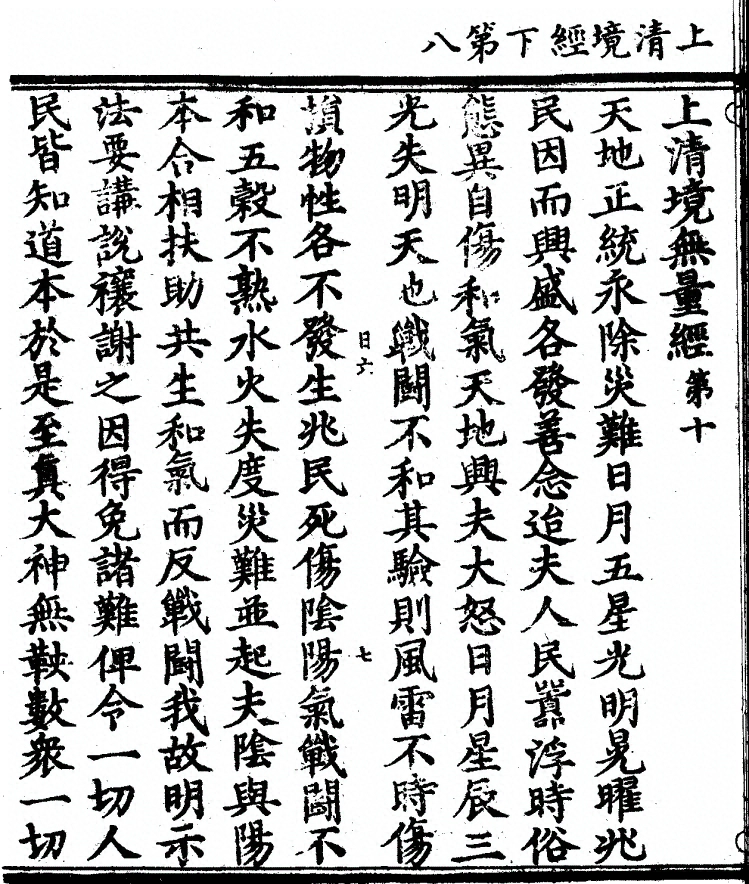 上清境經下第八
上清境無量經第十
天地正統永除災難日月五星光明晃曜兆
民因而興盛各發善念迨夫人民嚚浮時俗
態異自傷和氣天地興夫大怒日月星辰三
光失明天也戰鬪不和其驗則風雷不時傷
日六
七
損物性各不發生兆民死傷陰陽氣戰鬪不
和五糓不熟水火失度災難並起夫陰與陽
本合相扶助共生和氣而反戰鬪我故明示
法要講說禳謝之因得免諸難俾令一切人
民皆知道本於是至真大神無鞅數衆一切